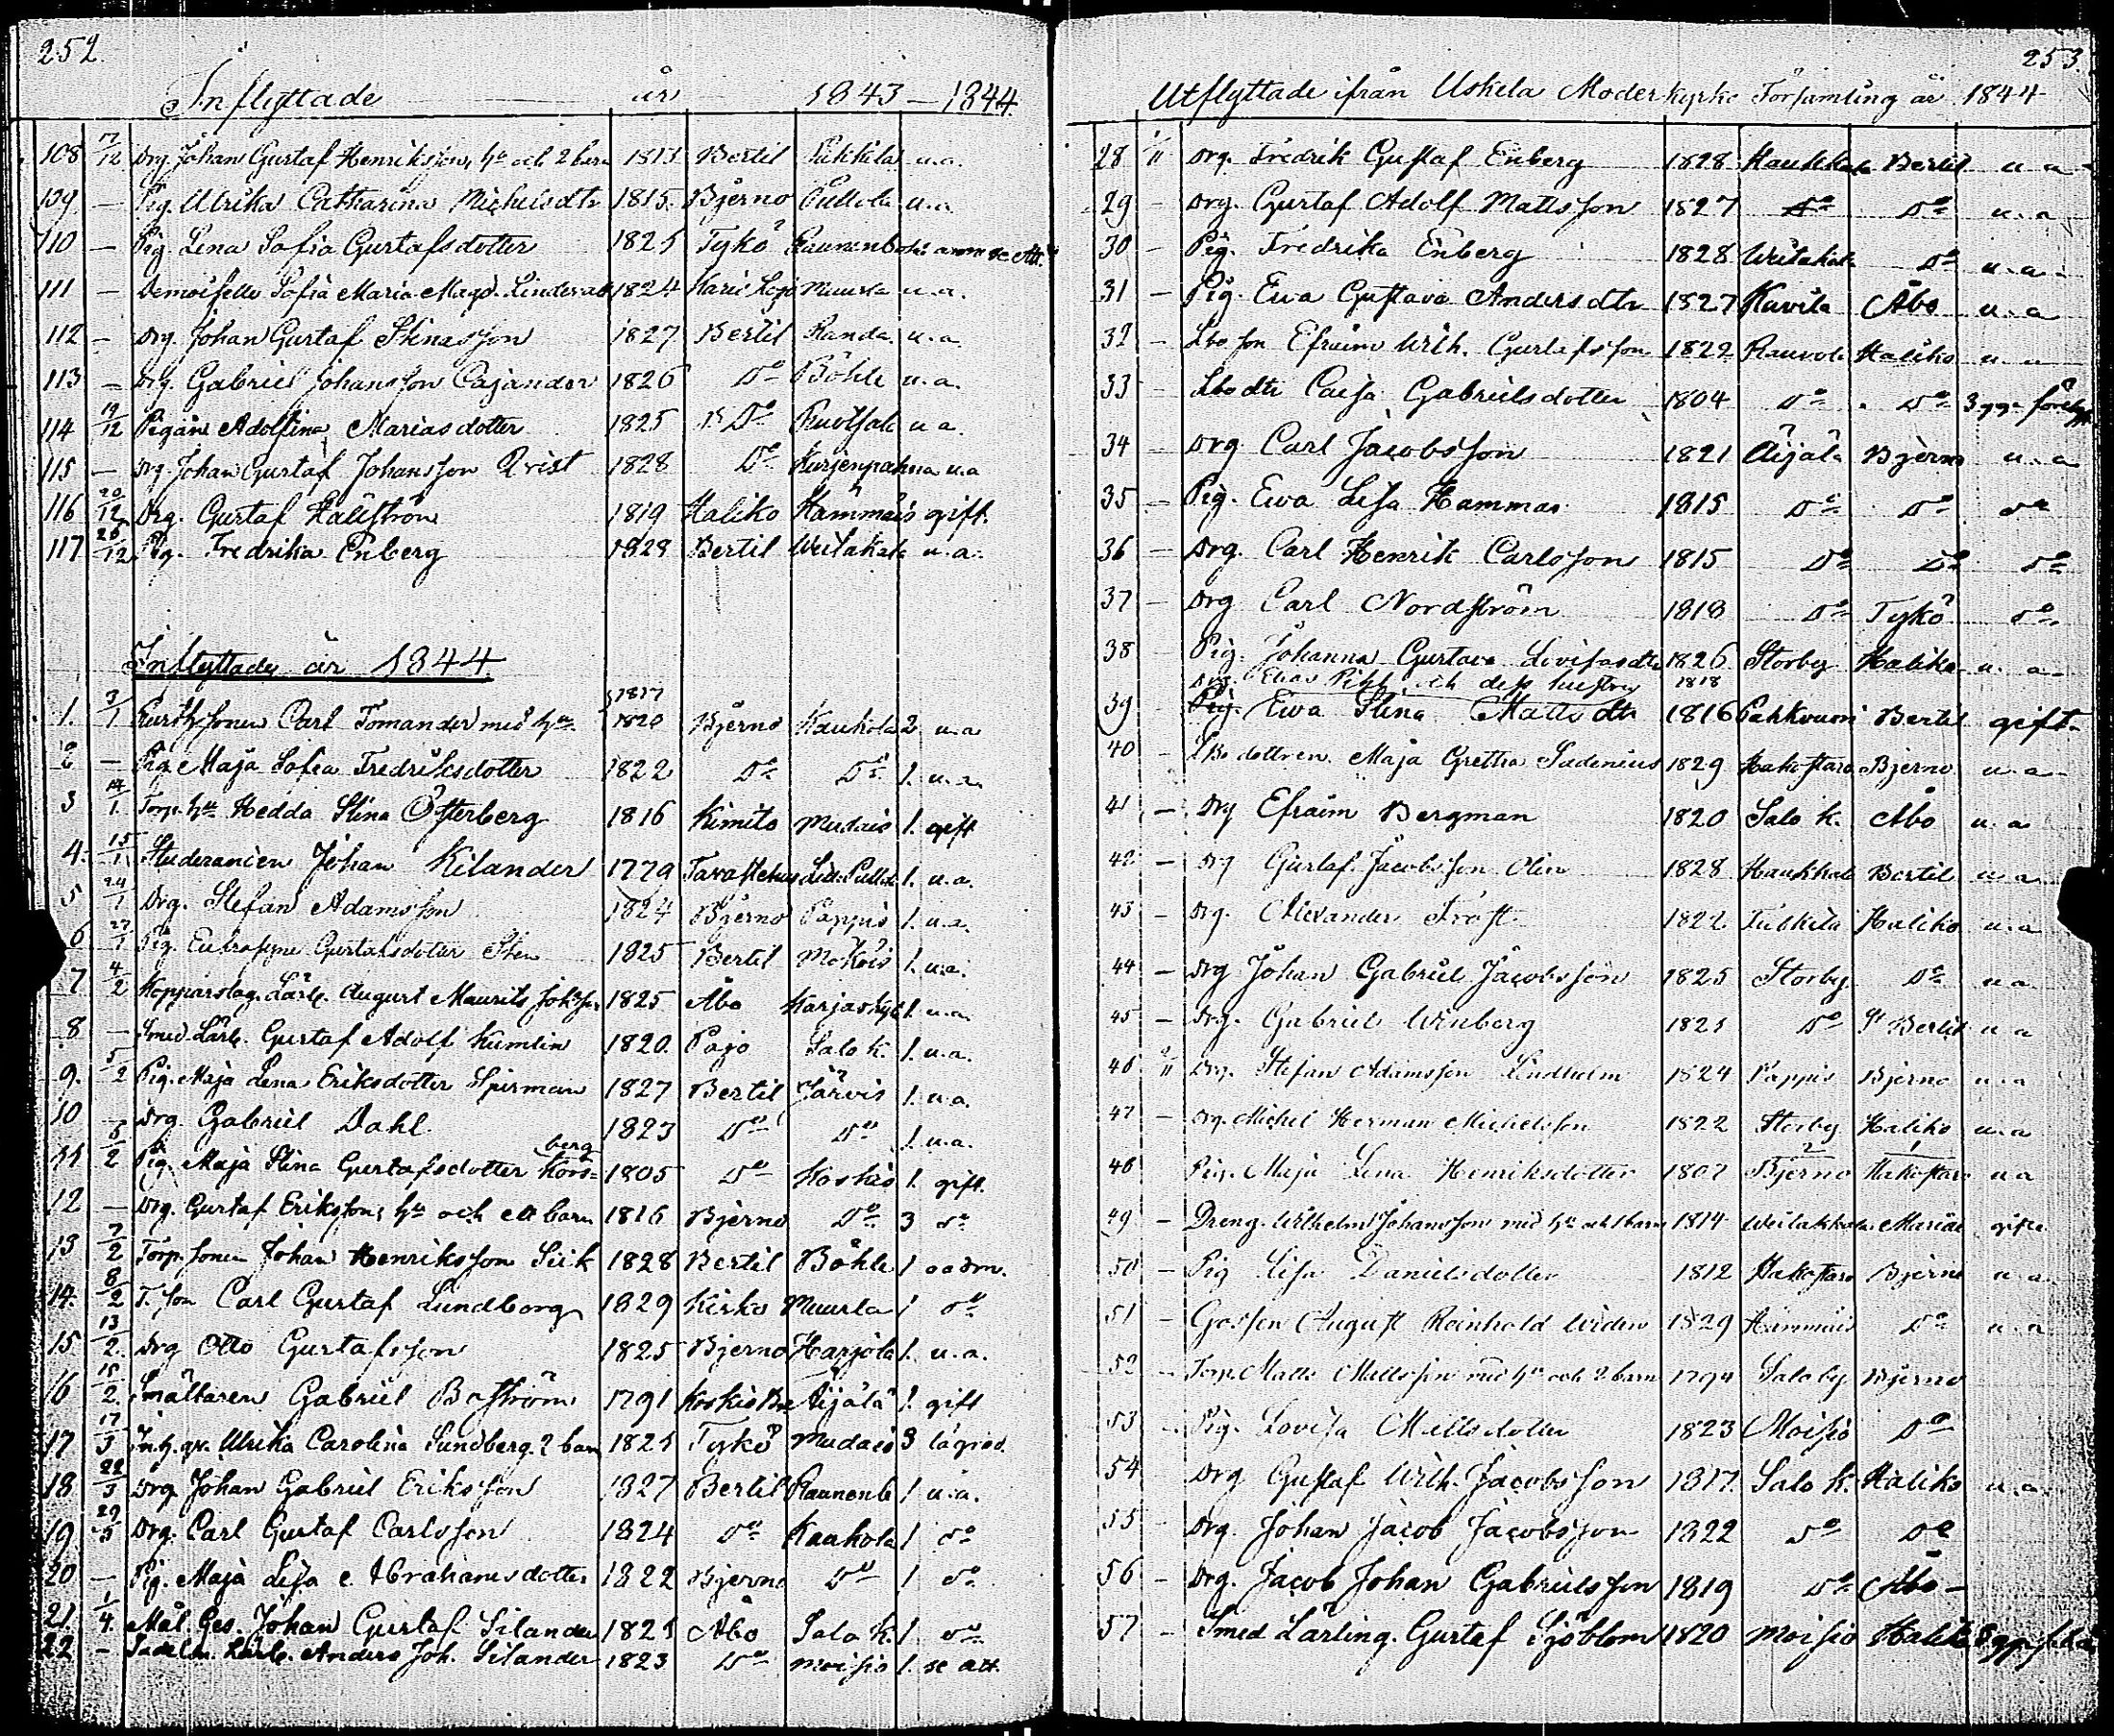 252.
Inflyttade år 1843–1844.
108 17/12 Drg. Johan Gustaf Henriksson, h:u och 2 barn 1813 Bertil Pukkila u.a.
109 — Pig. Ulrika Catharina Michelsdtr 1815. Bjerno Pullola u.a.
110 — Pig. Lena Sofia Gustafsdotter 1825 Tyko se att.
111 — Demoiselle Sofia Maria Magd. 1824 Karis Lojo Muurla u.a.
112 — Drg. Johan Gustaf Stinasson 1827 Bertil Randa u.a.
113 — Drg. Gabriel Johansson Cajander 1826 Do Böhle u.a.
114 19/12 Pigan Adolfina Mariasdotter 1825 Do Ruotsala u.a.
115 — Drg. Johan Gustaf Johansson Qvist 1828 Do Kurjenpahna u.a
116 20/12 Drg. Gustaf Hälström 1819 Haliko Hämmäis gift.
117 28/12 Pig. Fredrika Enberg 1828 Bertil Weitakala u.a.
Inflyttade år 1844.
1. 3/1 Carl Tomander med h:u 1817 1820 Bjerno Kaukola 2 u.a
2 — Pig. Maja Sofia Fredriksdotter 1822 Do Do 1. u.a.
3 14/1 Torp. h:u Hedda Stina Österberg 1816 Kimito Mudais 1. gift
4. 15/1 Studeranden Johan Kilander 1779 Tavastehus 1. u.a.
5 24/1 Drg. Stefan Adamsson 1824 Bjerno Pappis 1. u.a.
6 27/1 Pig. Gustafsdotter Sten 1825 Bertil Mökois 1. u.a.
7 4/2 Kopparslag. Lärl. August Maurits 1825 Åbo 1. u.a.
8 — Smed Lärl. Gustaf Adolf Kumlin 1820. Pojo Salo K. 1. u.a.
9. 5/2 Pig. Maja Lena Eriksdotter Spirman 1827 Bertil Järvis 1. u.a.
10 — Drg Gabriel Dahl 1823 Do Do 1. u.a.
11 6/2 Pig. Maja Stina Gustafsdotter Kors= berg 1805 Do Koskis 1. gift.
12 — Drg. Gustaf Eriksson, h:u och ett barn 1816 Bjerno Do 3 do
13 7/2 Torp. sonen Johan Henriksson Siik 1828 Bertil Böhle 1 oadm.
14. 8/2 T. son Carl Gustaf Lundborg 1829 Kisko Muurla 1 do
15. 13/2. Drg Otto Gustafsson 1825 Bjerno Harjola 1. u.a.
16 15/2. Smältaren Gabriel Boström 1791 Koskis Äijälä 1. gift
17 17/3 Ulrika Carolina Sundberg. 2 barn 1821 Tykö Mudais 3
18 22/3 Drg Johan Gabriel Eriksson 1827 Bertil Raunenb 1 u.a.
19. 29/3 Drg. Carl Gustaf Carlsson 1824 do Kaukola 1 do
20 — Pig. Maja Lisa Abrahamsdotter 1822 Bjerno Do 1 do
21. 1/4. Mål. Ges. Johan Gustaf Silander 1821 Åbo Salo K. 1 do
22 — Sadelm. Lärl. Anders Joh. Silander 1823 Do Moisio 1. se att.
253.
Utflyttade ifrån Uskela Moderkyrko Församling år 1844
28 1/11 Drg. Fredrik Gustaf Enberg 1828 Haukkala Bertil u a
29 — Drg. Gustaf Adolf Mattsson 1827 Do Do u.a
30 — Pig. Fredrika Enberg 1828 Weitakala Do u.a.
31 — Pig. Ewa Gustava Andersdtr 1827 Kavila Åbo u.a
32 — Lbo son Efraim Wilh. Gustafsson 1822 Rauvola Haliko u a
33 — Lbo dtr Caisa Gabrielsdotter 1804 Do Do 3 ggr
34 — Drg Carl Jacobsson 1821 Äijälä Bjerno u.a
35 — Pig. Ewa Lisa Hammar 1815 Do Do do
36 — Drg. Carl Henrik Carlsson 1815 Do Do do
37 — Drg Carl Nordström 1818 Do Tykö do
38 Pig. Johanna Gustava Lovisasdtr 1826 Storby Haliko u. a.
Drg. Elias Pihl och dess hustru 1818
39 Pig. Ewa Stina Mattsdtr 1816 Pahkvuori Bertil gift.
40 — Lbo dottren Maja Gretha Sadenius 1829 Hakostaro Bjerno u.a.
41 — Drg Efraim Bergman 1820 Salo K. Åbo u. a
42 — Drg Gustaf Jacobsson Olin 1828 Haukkala Bertil u a
43 — Drg. Alexander Frost 1822 Haliko u.a
44 — Drg Johan Gabriel Jacobsson 1825 Storby Do u a
45 — Drg. Gabriel Winberg 1821 Do St Bertil u a
46 2/11 Drg. Stefan Adamsson Lindholm 1824 Pappis Bjerno u.a
47 — Drg. Michel Herman Michelsson 1822 Storby Haliko u.a
48 Pig. Maja Lena Henriksdotter 1807 Bjerno 2 Hakostaro 1 u a
49 — Dreng. Wilhelm Johansson med h:u och 1 barn 1814 Weitakkala Mariae gifta
50 — Pig Lisa Danielsdotter 1812 Hakostaro Bjerno u a.
51 — Gossen August Reinhold Widen 1829 Hämmäis Do u.a
52 — Torp. Matts Mattsson med h:u och 2 barn 1794 Salo by Bjerno
53 — Pig. Lovisa Mattsdotter 1823 Moisio Do
54 — Drg Gustaf Wilh. Jacobsson 1817 Salo K. Haliko u.a.
55 — Drg. Johan Jacob Jacobsson 1822 do Do
56 — Drg. Jacob Johan Gabrielsson 1819 Do Åbo —
57 — Smed Lärling. Gustaf Sjöblom 1820 Moisio Haliko